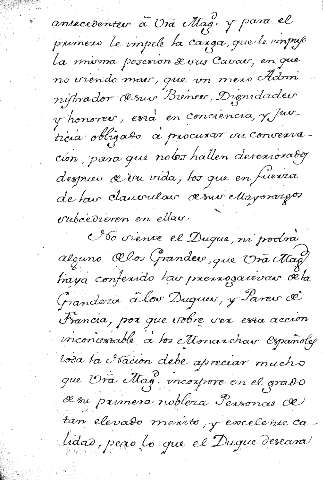 antecedentes â Vrâ Mag.d y para el
primero le impele la carga, que le impuso
la misma posesion de sus Casas, en que
no siendo mas, que un mero Admi
nistrador de sus Bienes, Dignidades
y honores, está en conciencia, y Jus
ticia obligado â procurar su conserva
cion, para que no los hallen deteriorados
despues de su vida, los que en fuerza
de las clausulas de sus Mayorazgos
subcedieren en ellas.
No siente el Duque, ni podrâ
alguno de los Grandes, que Vrâ Mag.d
haya conferido las prerrogativas de la
Grandeza â los Duques, y Pares de
Francia, por que sobre ser esta accion
incontestable â los Monarchas Españoles
toda la Nacion debe apreciar mucho
que Vrâ Mag.d incorpore en el grado
de su primera nobleza Personas de
tan elevado merito, y excelente ca
lidad, pero lo que el Duque deseara